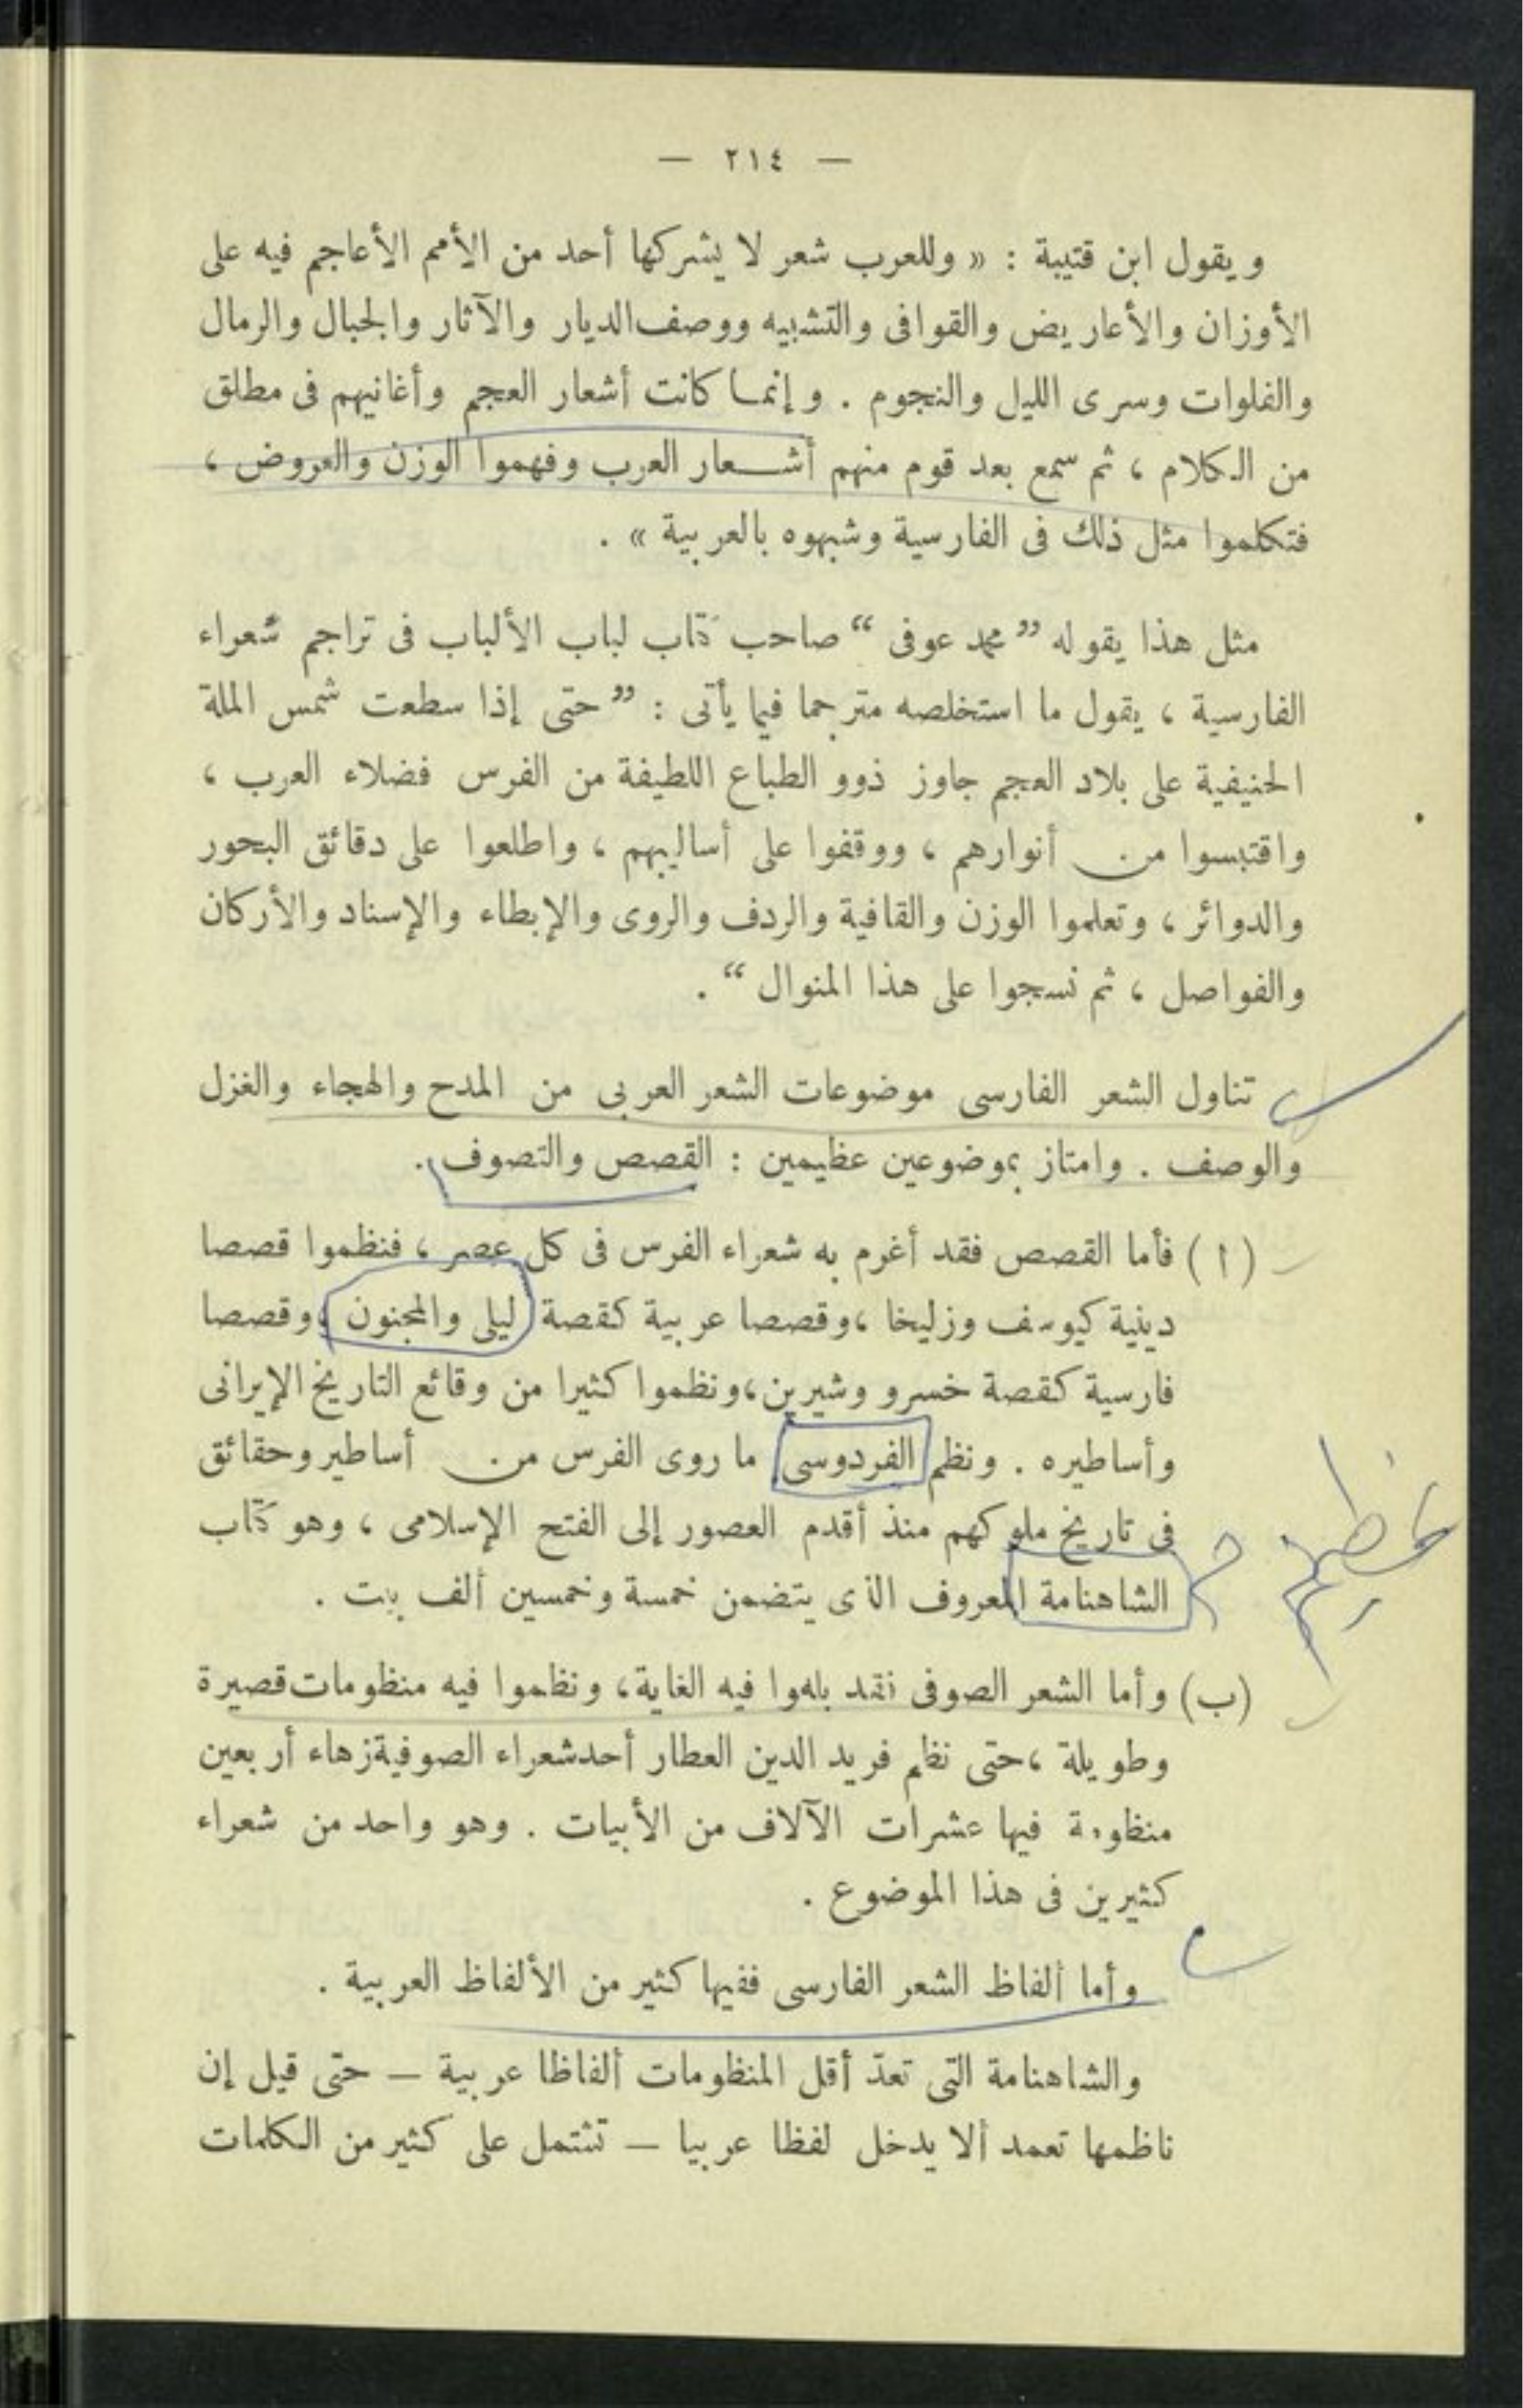 — ٢١٤ —
ويقول ابن قتيبة : « وللعرب شعر لا يشركها أحد من الأمم الأعاجم فيه على
الأوزان والأعاريض والقوافى والتشبيه ووصف الديار والآثار والجبال والرمال
والفلوات وسرى الليل والنجوم . وإنما كانت أشعار العجم وأغانيهم فى مطلق
من الكلام ، ثم سمع بعد قوم منهم أشعار العرب وفهموا الوزن والعروض ،
فتكلموا مثل ذلك فى الفارسية وشبهوه بالعربية » .
مثل هذا يقوله ” محمد عوفى “ صاحب كتاب لباب الألباب فى تراجم شعراء
الفارسية ، يقول ما استخلصه مترجما فيما يأتى : ” حتى إذا سطعت شمس الملة
الحنيفية على بلاد العجم جاوز ذوو الطباع اللطيفة من الفرس فضلاء العرب ،
واقتبسوا من أنوارهم ، ووقفوا على أساليبهم ، واطلعوا على دقائق البحور
والدوائر ، وتعلموا الوزن والقافية والردف والروى والإبطاء والإسناد والأركان
والفواصل ، ثم نسجوا على هذا المنوال “ .
تناول الشعر الفارسى موضوعات الشعر العربى من المدح والهجاء والغزل
والوصف . وامتاز بموضوعين عظيمين : القصص والتصوف .
( ا ) فأما القصص فقد أغرم به شعراء الفرس فى كل عصر ، فنظموا قصصا
دينية كيوسف وزليخا ، وقصصا عربية كقصة ليلى والمجنون ، وقصصا
فارسية كقصة خسرو وشيرين ، ونظموا كثيرا من وقائع التاريخ الإيرانى
وأساطيره . ونظم الفردوسى ما روى الفرس من أساطير وحقائق
فى تاريخ ملوكهم منذ أقدم العصور إلى الفتح الإسلامى ، وهو كتاب
الشاهنامة المعروف الذى يتضمن خمسة وخمسين ألف بيت .
(ب) وأما الشعر الصوفى فقد بلغوا فيه الغاية ، ونظموا فيه منظومات قصيرة
وطويلة ، حتى نظم فريد الدين العطار أحد شعراء الصوفية زهاء أربعين
منظومة فيها عشرات الآلاف من الأبيات . وهو واحد من شعراء
كثيرين فى هذا الموضوع .
وأما ألفاظ الشعر الفارسى ففيها كثير من الألفاظ العربية .
والشاهنامة التى تعدّ أقل المنظومات ألفاظا عربية — حتى قيل إن
ناظمها تعمد ألا يدخل لفظا عربيا — تشتمل على كثير من الكلمات